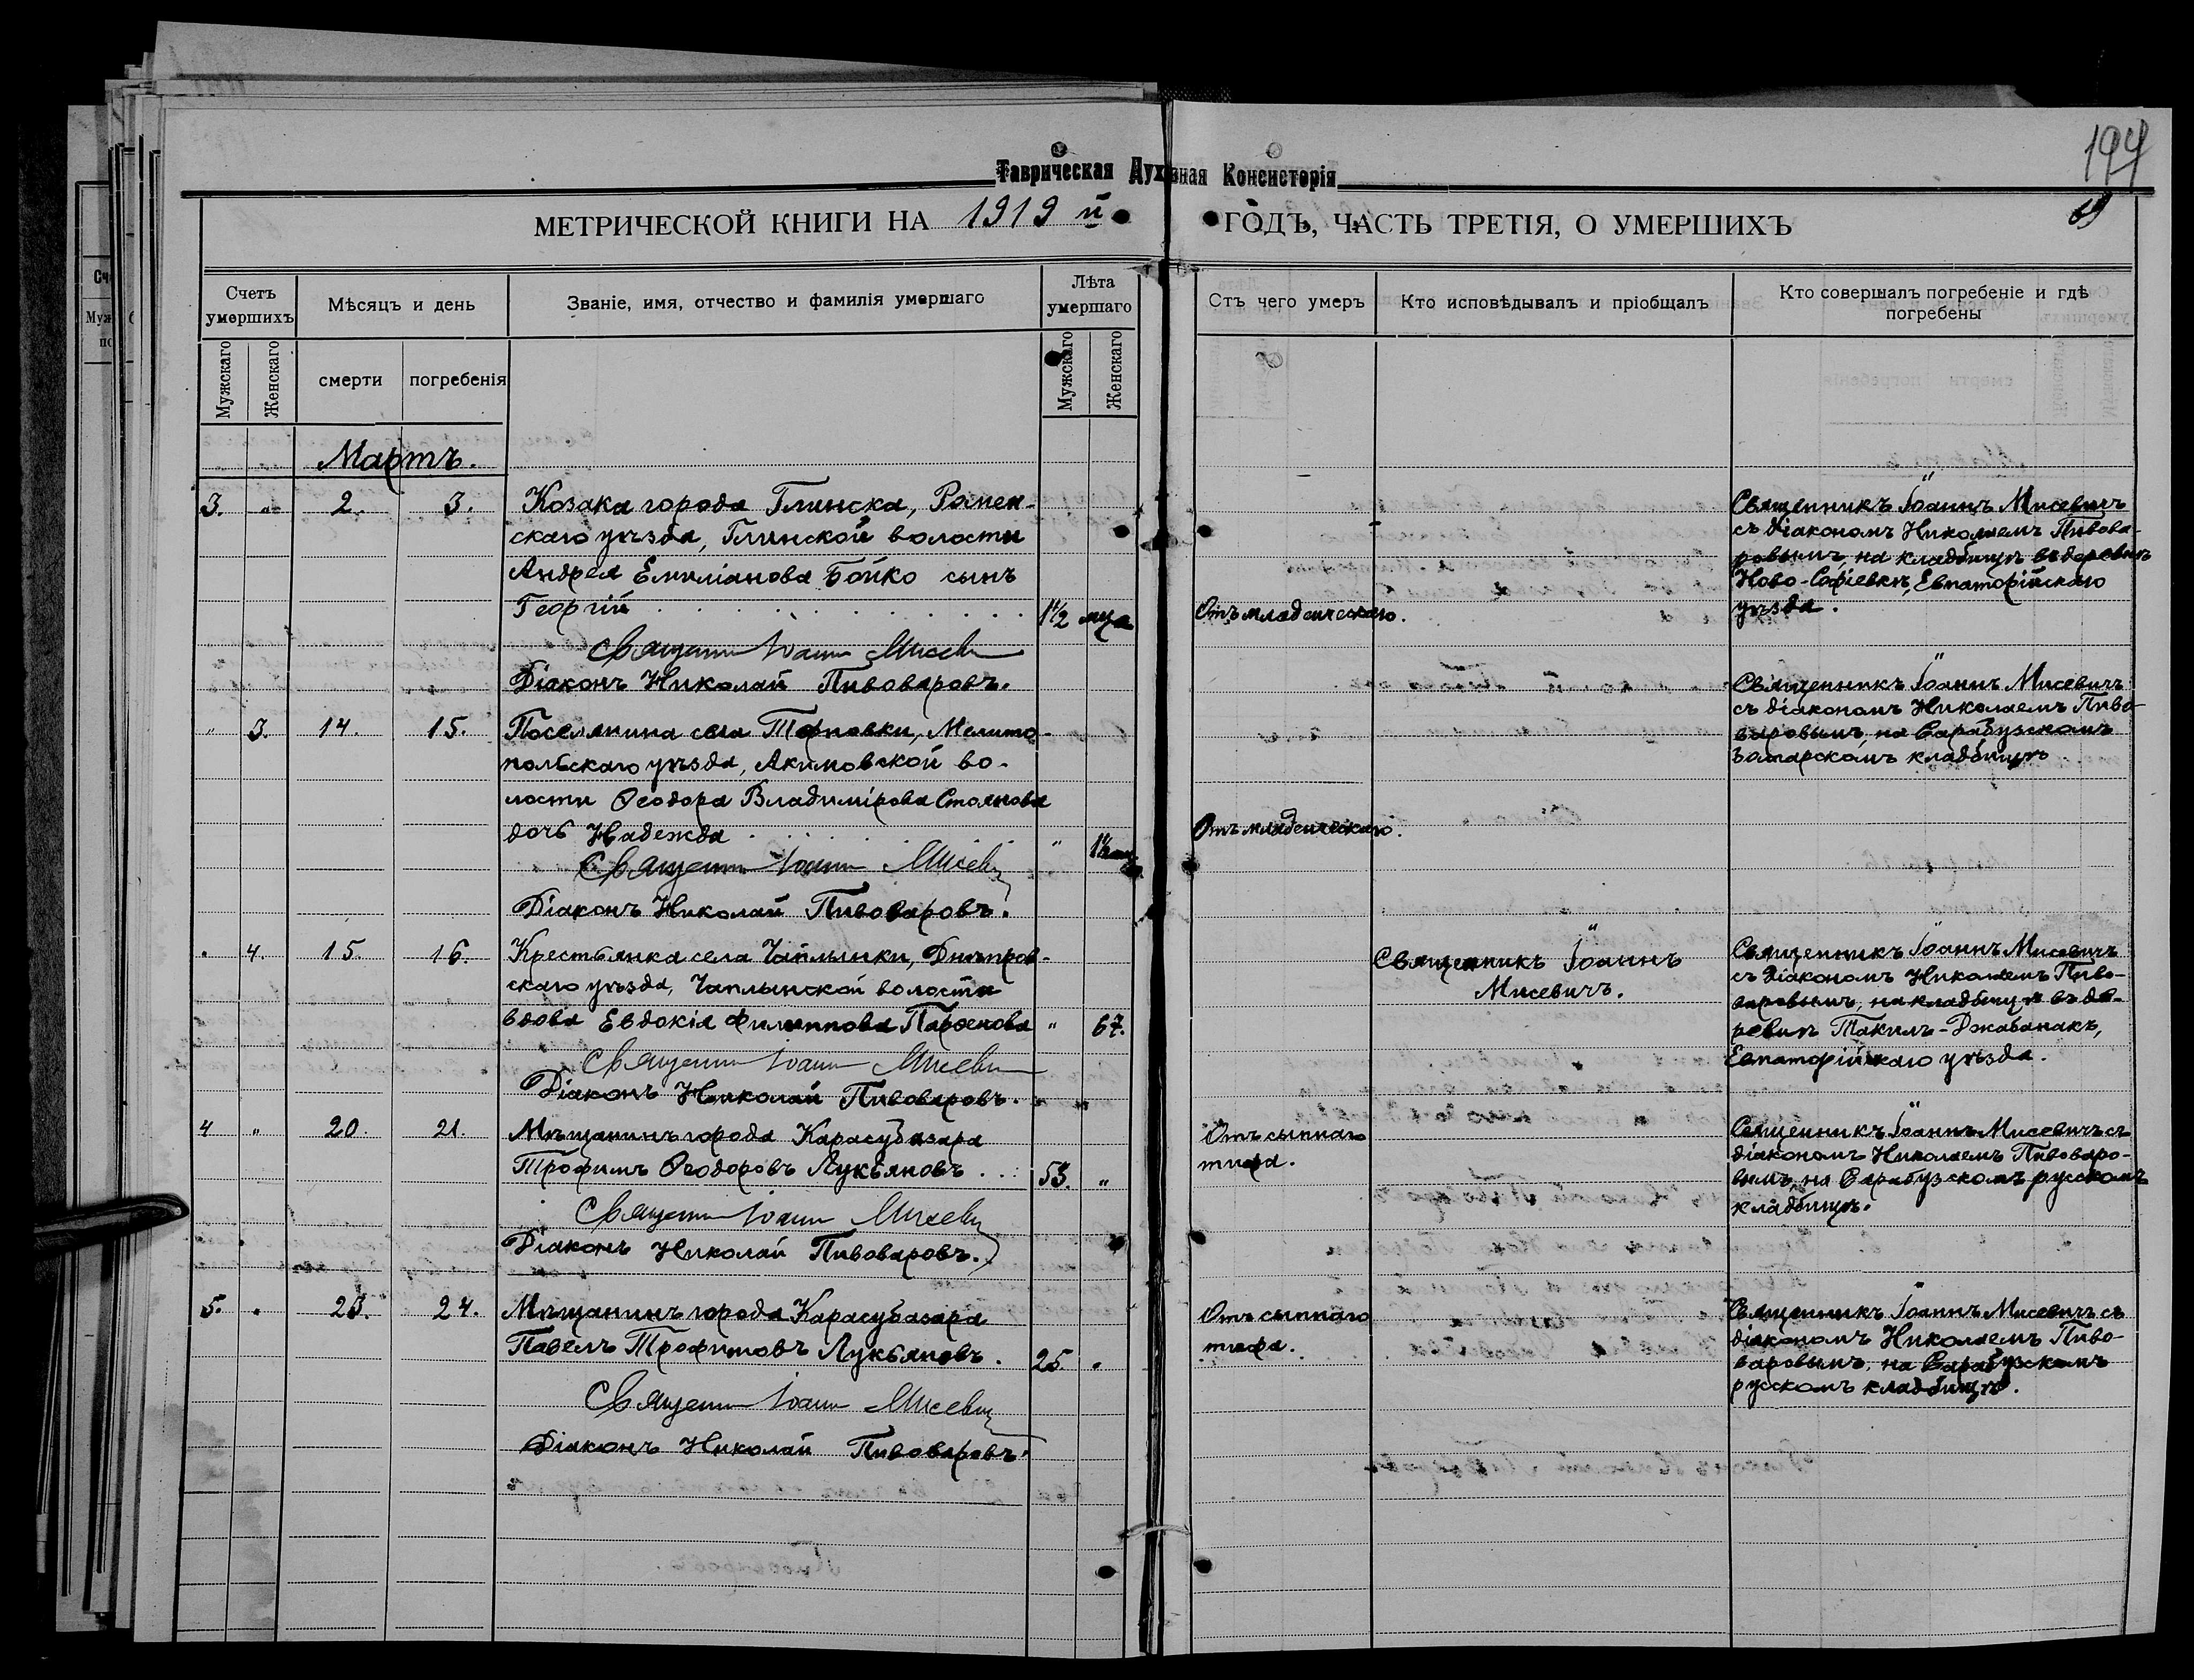 199
Таврическая Духовная Консисторія
69
МЕТРИЧЕСКОЙ КНИГИ НА 1919 й ГОДЪ, ЧАСТЬ ТРЕТІЯ, О УМЕРШИХЪ
Счетъ умершихъ
Мѣсяцъ и день
Званіе, имя, отчество и фамилія умершаго
Лѣта умершаго
Стъ чего умеръ
Кто исповѣдывалъ и пріобщалъ
Кто совершалъ погребеніе и гдѣ погребены
Мужскаго
Женскаго
смерти
погребенія
Мужскаго
Женскаго
Мартъ.
3. " 2. 3.
Козака города Глинска, Ромен-
скаго уѣзда, Глинской волости
Андрея Емиліанова Бойко сынъ
Георгій
1½ мца
Отъ младенческаго.
Священникъ Іоаннъ Мисевичъ
съ діакономъ Николаемъ Пивова-
ровымъ, на кладбищѣ въ деревнѣ
Ново-Софіевкѣ, Евпаторійскаго
уѣзда.
Священникъ Іоаннъ Мисевичъ
Діаконъ Николай Пивоваровъ.
" 3. 14. 15.
Поселянина села Терновки, Мелито-
польскаго уѣзда, Акимовской во-
лости Ѳеодора Владимірова Стоянова
дочь Надежда
"
Отъ младенческаго.
Священникъ Іоаннъ Мисевичъ
съ діакономъ Николаемъ Пиво-
варовымъ, на Сарабузскомъ
кладбищѣ
Священникъ Іоаннъ Мисевичъ
Діаконъ Николай Пивоваровъ.
" 4. 15. 16.
Крестьянка села Чаплынки, Днѣпров-
скаго уѣзда, Чаплынской волости
вдова Евдокія Филиппова Парѳенова
" 67.
Священникъ Іоаннъ
Мисевичъ.
Священникъ Іоаннъ Мисевичъ
съ діакономъ Николаемъ Пиво-
варовымъ, на кладбищѣ въ де-
ревнѣ Такилъ-Джабанакъ,
Евпаторійскаго уѣзда.
Священникъ Іоаннъ Мисевичъ
Діаконъ Николай Пивоваровъ.
4 " 20. 21.
Мѣщанинъ города Карасубазара
Трофимъ Ѳеодоровъ Лукьяновъ
53. "
Отъ сыпнаго
тифа.
Священникъ Іоаннъ Мисевичъ съ
діакономъ Николаемъ Пивоваро-
вымъ, на Сарабузскомъ русскомъ
кладбищѣ.
Священникъ Іоаннъ Мисевичъ
Діаконъ Николай Пивоваровъ.
5. " 23. 24.
Мѣщанинъ города Карасубазара
Павелъ Трофимовъ Лукьяновъ.
25. "
Отъ сыпнаго
тифа.
Священникъ Іоаннъ Мисевичъ съ
діакономъ Николаемъ Пиво-
варовымъ, на Сарабузскомъ
русскомъ кладбищѣ.
Священникъ Іоаннъ Мисевичъ
Діаконъ Николай Пивоваровъ.